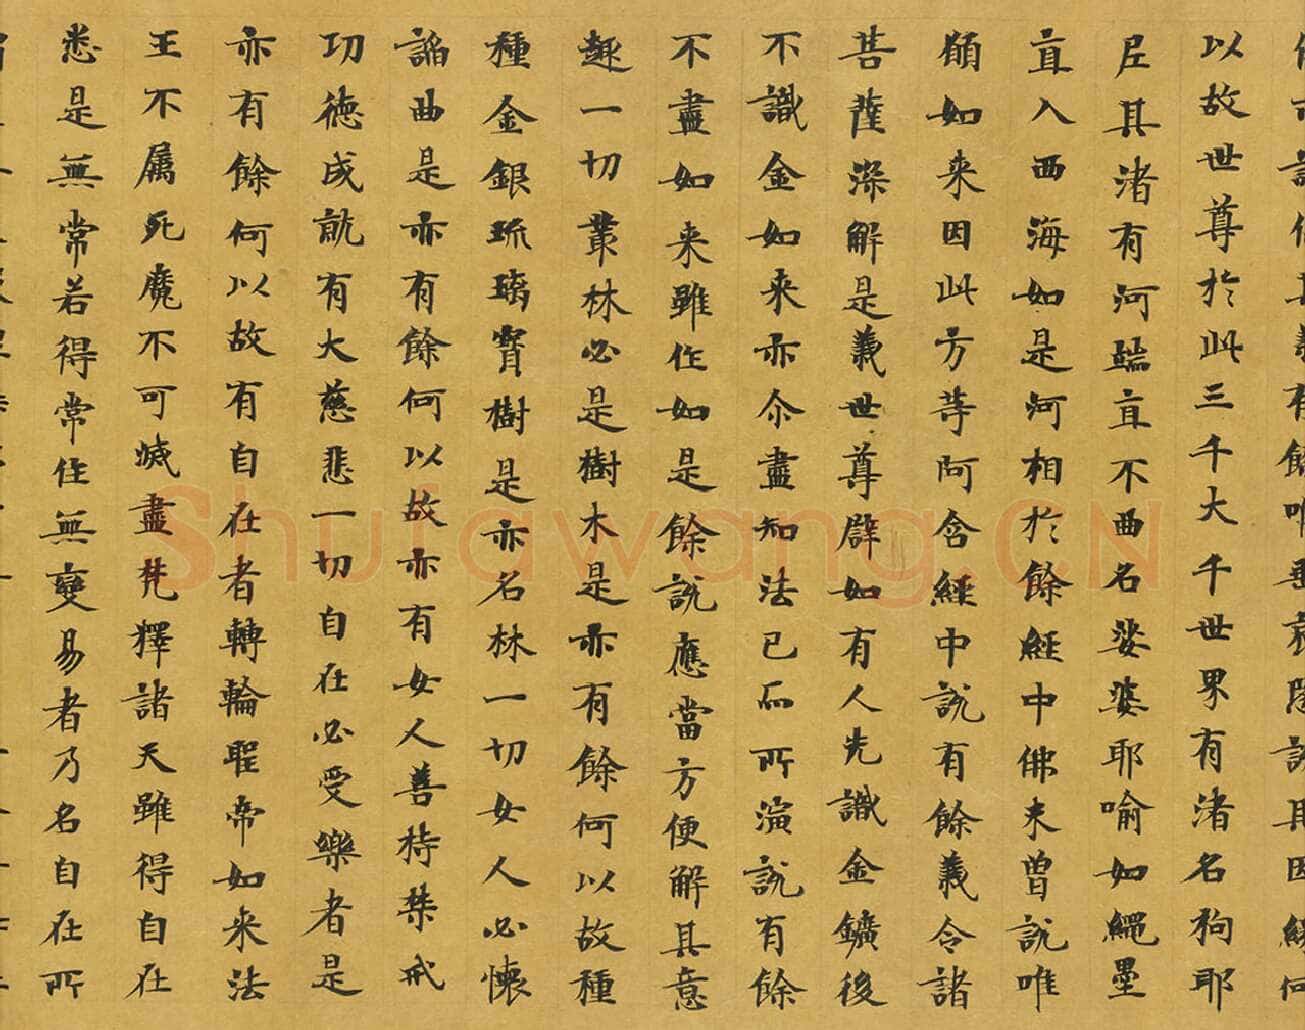 以故世尊於此三千大千世界有渚名拘耶
尼其渚有河端直不曲名娑婆耶喻如繩墨
直入西海如是河相於餘經中佛未曾說唯
願如来因此方等阿含經中說有餘義令諸
菩薩深解是義世尊辟如有人先識金鑛後
不識金如来亦尒盡知法已而所演說有餘
不盡如来雖作如是餘說應當方便解其意
趣一切叢林必是樹木是亦有餘何以故種
種金銀琉璃寶樹是亦名林一切女人必懷
諂曲是亦有餘何以故亦有女人善持禁戒
功德成就有大慈悲一切自在必受樂者是
亦有餘何以故有自在者轉輪聖帝如来法
王不属死魔不可滅盡梵釋諸天雖得自在
悉是無常若得常住無變易者乃名自在所
Shufawang.CN